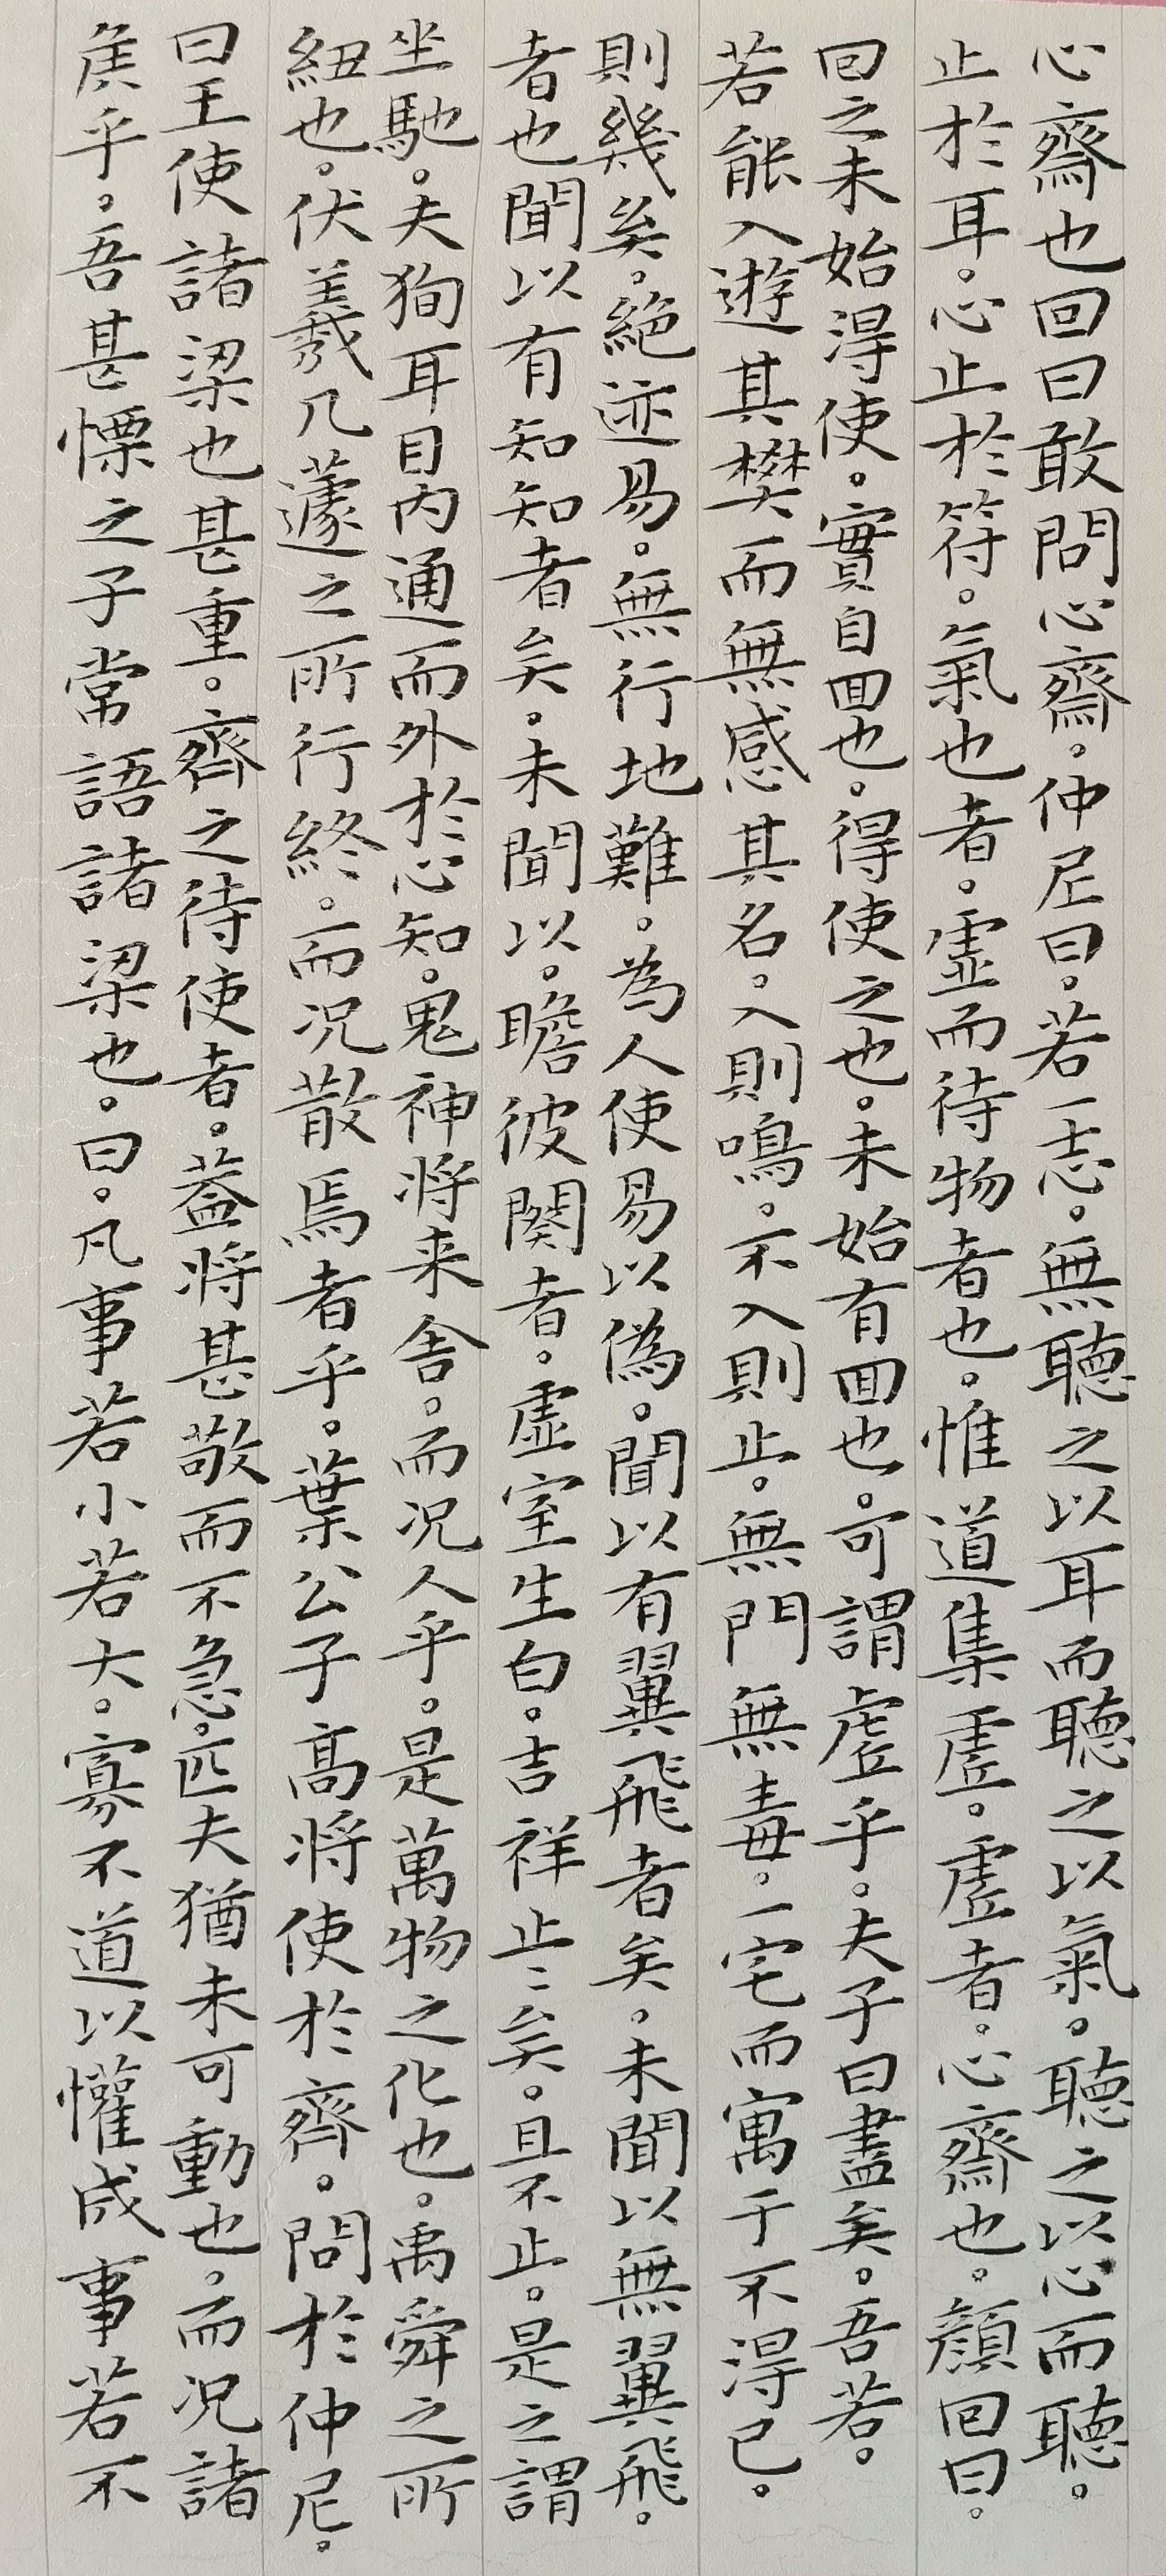 心齋也回曰敢問心齋。仲尼曰。若一志。無聽之以耳而聽之以氣。聽之以心而聽。
止於耳。心止於符。氣也者。虛而待物者也。惟道集虛。虛者。心齋也。顏回曰。
回之未始淂使。實自回也。得使之也。未始有回也。可謂虛乎。夫子曰盡矣。吾若。
若能入遊其樊而無感其名。入則鳴。不入則止。無門無毒。一宅而寓于不淂已。
則幾矣。絕迹易。無行地難。為人使易以偽。聞以有翼飛者矣。未聞以無翼飛。
者也聞以有知知者矣。未聞以。瞻彼闋者。虛室生白。吉祥止〻矣。且不止。是之謂
坐馳。夫狥耳目内通而外於心知。鬼神将来舍。而况人乎。是萬物之化也。禹舜之所
紐也。伏羲几蘧之所行終。而况散焉者乎。葉公子高将使於齊。問於仲尼。
曰王使諸梁也甚重。齊之待使者。蓋将甚敬而不急。匹夫猶未可動也。而况諸
矦乎。吾甚慄之子常語諸梁也。曰。凡事若小若大。寡不道以懽成事若不